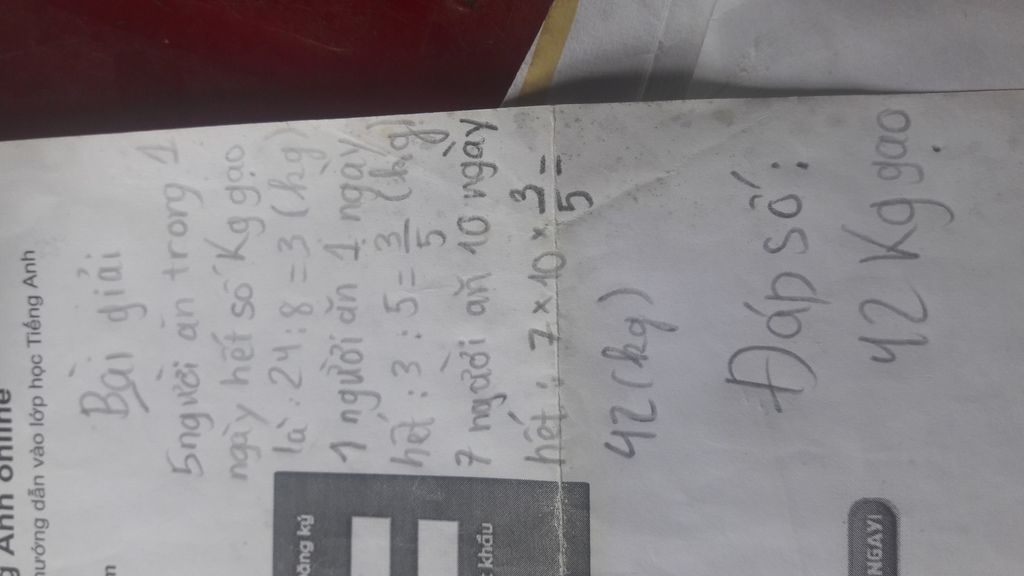 Anh online
hướng dẫn vào lớp học Tiếng Anh
Bài giải
5 người ăn trong 1
ngày hết số Kg gạo
là : 24 : 8 = 3 (kg)
1 người ăn 1 ngày
hết : 3 : 5 = 3/5 (kg)
7 người ăn 10 ngày
hết : 7 x 10 x 3/5 =
42 (kg)
Đáp số :
42 Kg gạo
đăng ký
khẩu
NGAY!